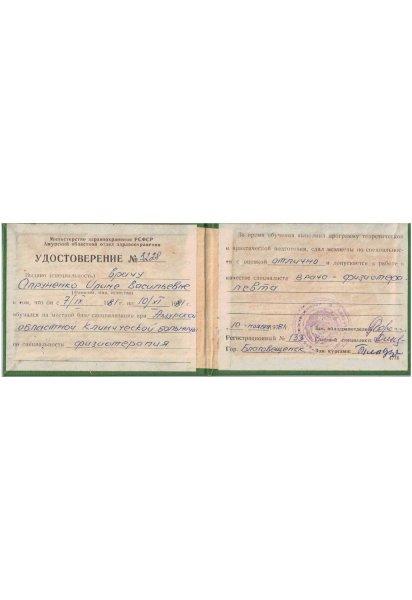 Министерство здравоохранения РСФСР
Амурский областной отдел здравоохранения
УДОСТОВЕРЕНИЕ № 3228
Выдано (специальность) врачу
Ирине Васильевне
(фамилия, имя, отчество)
в том, что он с 7/IX 1981 г. по 10/XI 1981 г.
обучался на местной базе специализации при Амурской
областной клинической больнице
по специальности физиотерапия
За время обучения выполнил программу теоретической
и практической подготовки, сдал экзамены по специальнос-
ти с оценкой отлично и допускается к работе в
качестве специалиста врача-физиотера
певта
10 ноября 1981
Зав. облздравотделом
Регистрационный № 133 Главный специалист
Гор. Благовещенск Зав. курсами: